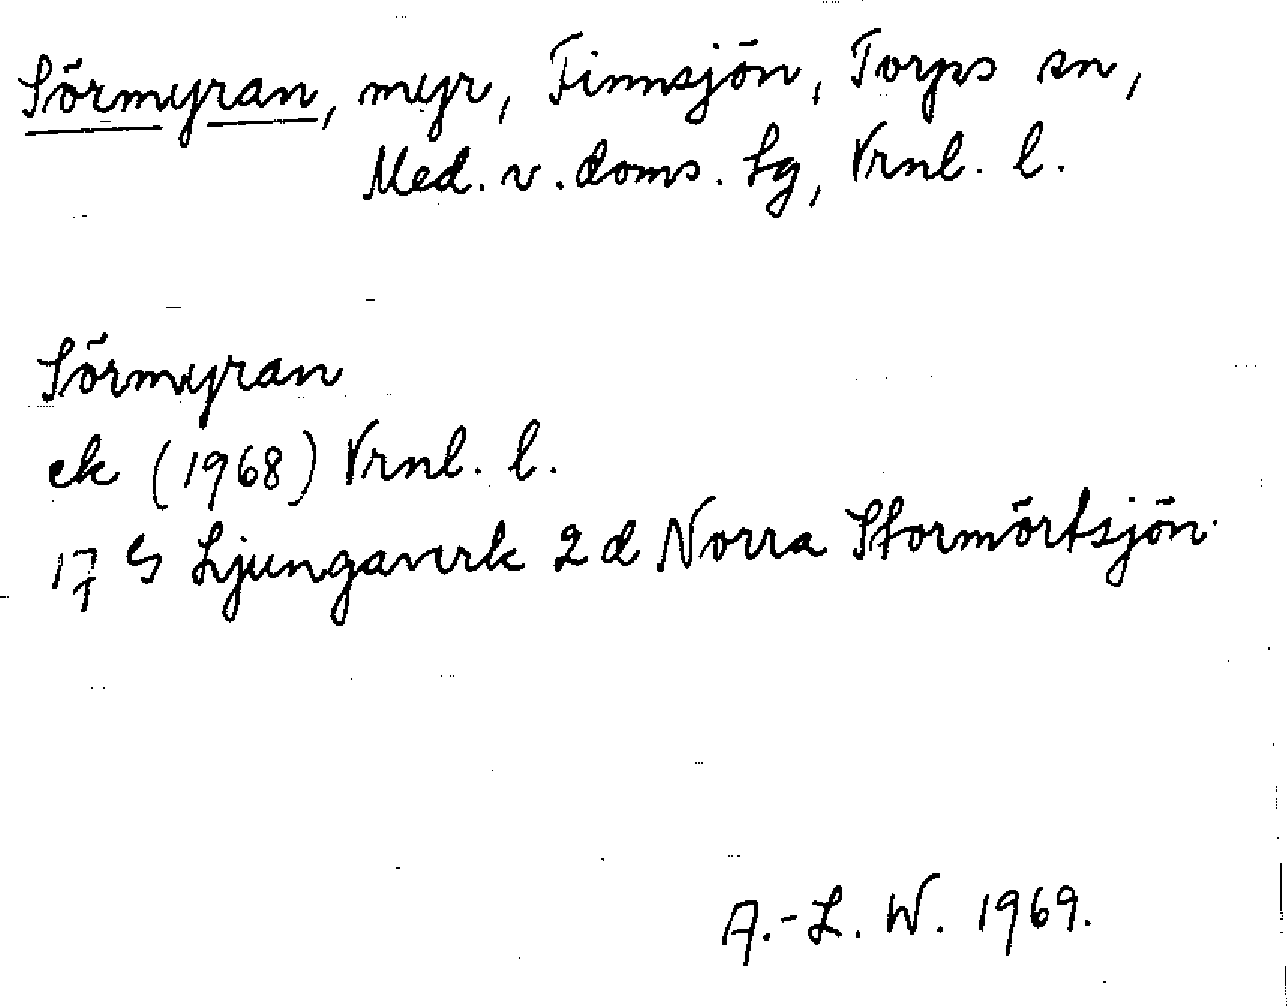 Sörmyran, myr, Finnsjön, Torps sn,
Med. v. doms. lg, Vrnl. l.
Sörmyran
ek (1968) Vrnl. l.
17 G Ljungaverk 2 d Norra Stormörtsjön.
A.-L. W. 1969.